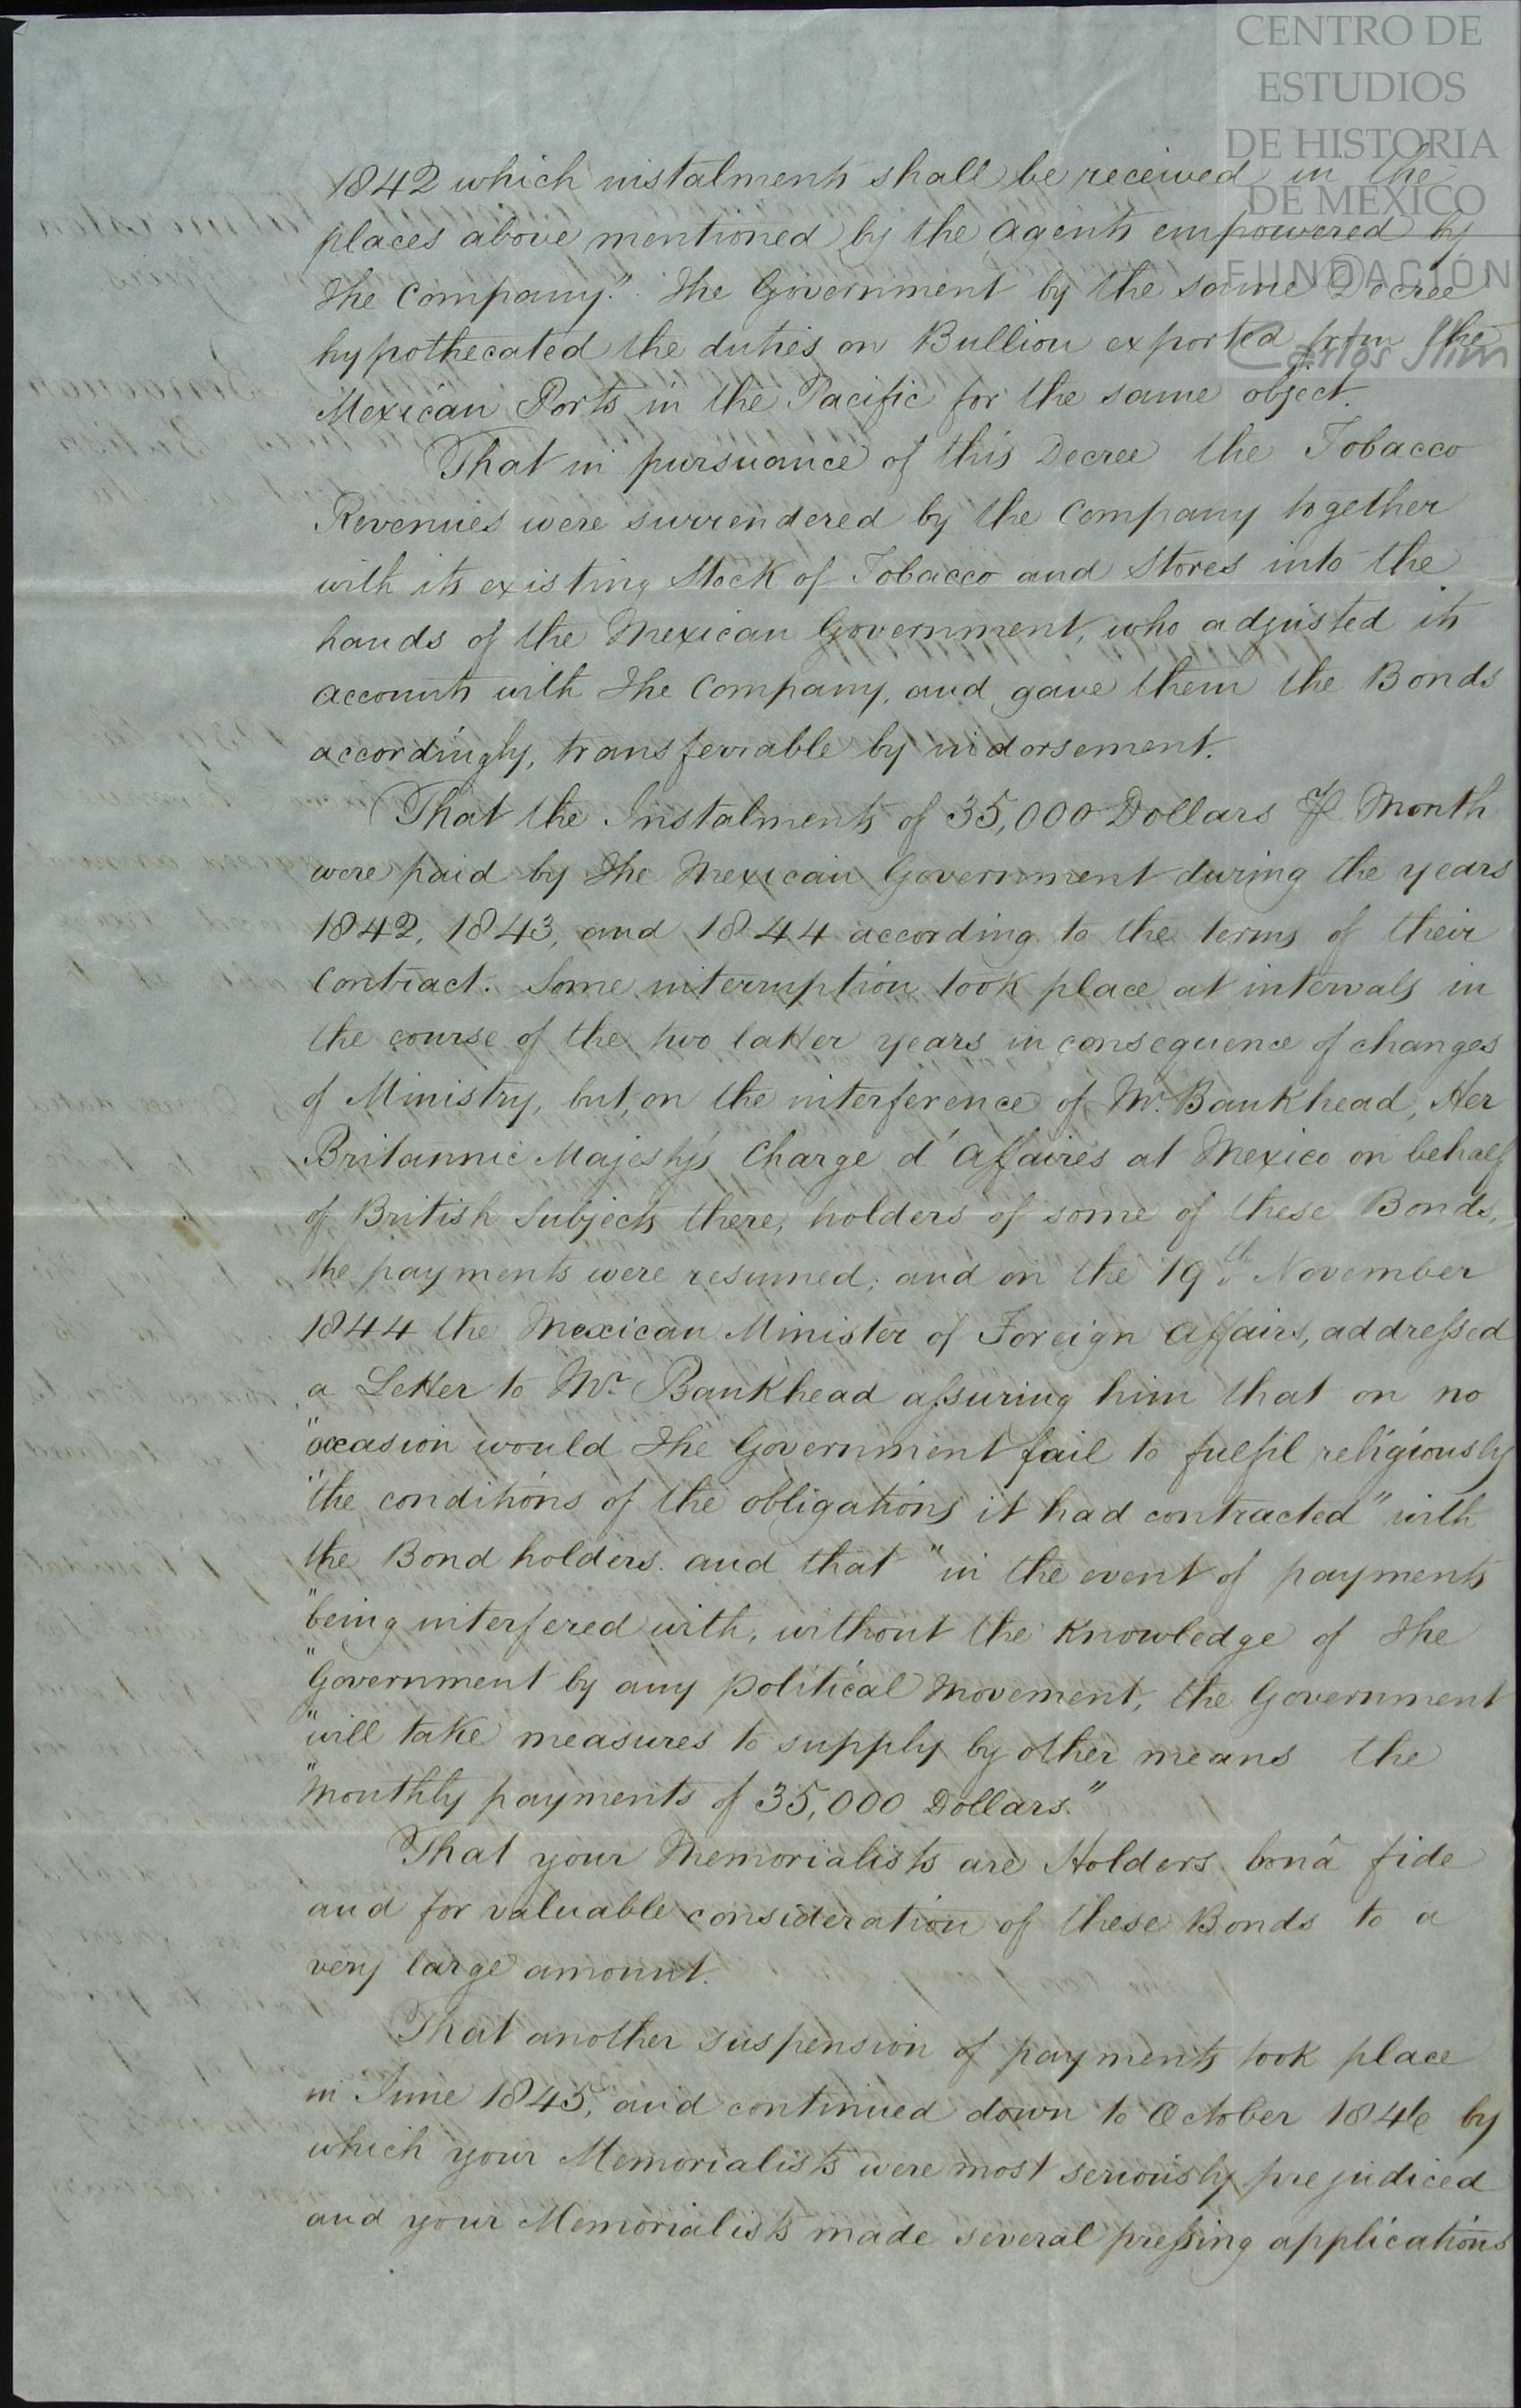 CENTRO DE
ESTUDIOS
DE HISTORIA
DE MÉXICO
FUNDACIÓN
Carlos Slim
1842 which instalments shall be received in the
places above mentioned by the Agents empowered by
the Company." The Government by the same Decree
hypothecated the duties on Bullion exported from the
Mexican Ports in the Pacific for the same object.
That in pursuance of this Decree the Tobacco
Revenues were surrendered by the Company together
with its existing Stock of Tobacco and Stores into the
hands of the Mexican Government, who adjusted its
accounts with the Company, and gave them the Bonds
accordingly, transferrable by indorsement.
That the Instalments of 35,000 Dollars ⅌ Month
were paid by the Mexican Government during the years
1842, 1843, and 1844 according to the terms of their
Contract. Some interruption took place at intervals in
the course of the two latter years in consequence of changes
of Ministry, but, on the interference of Mr. Bankhead, Her
Britannic Majesty's Charge d'Affaires at Mexico on behalf
of British Subjects there, holders of some of these Bonds,
the payments were resumed; and on the 19th November
1844 the Mexican Minister of Foreign Affairs, addressed
a Letter to Mr. Bankhead assuring him that on no
"occasion would the Government fail to fulfil religiously
"the conditions of the obligations it had contracted" with
the Bond holders. and that "in the event of payments
"being interfered with, without the knowledge of the
"Government by any political movement, the Government
"will take measures to supply by other means the
"monthly payments of 35,000 Dollars."
That your Memorialists are Holders bonâ fide
and for valuable consideration of these Bonds to a
very large amount.
That another suspension of payments took place
in June 1845, and continued down to October 1846 by
which your Memorialists were most seriously prejudiced
and your Memorialists made several pressing applications